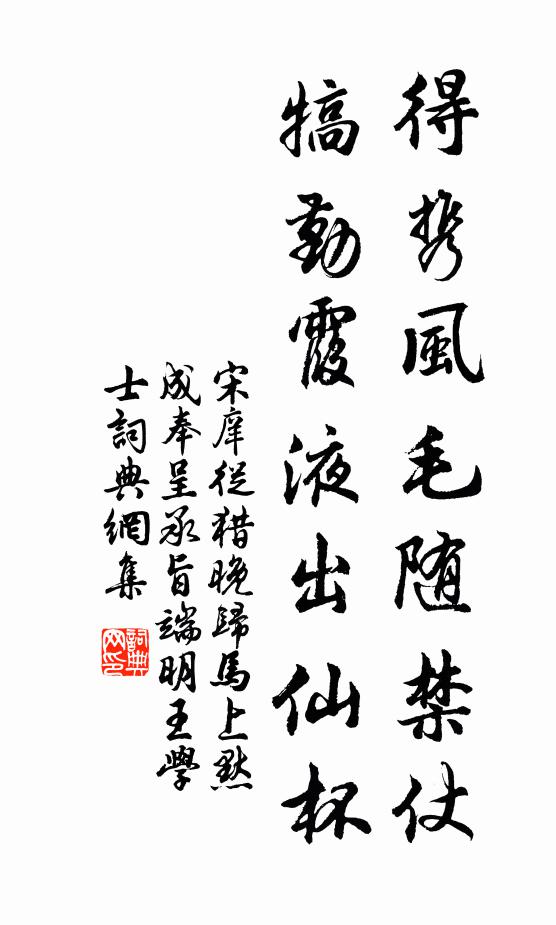 得携風毛随禁仗
犒勤霞液出仙杯
宋庠從猎晚歸馬上默
成奉呈承旨端明王學
士詞典網集
詞典网印